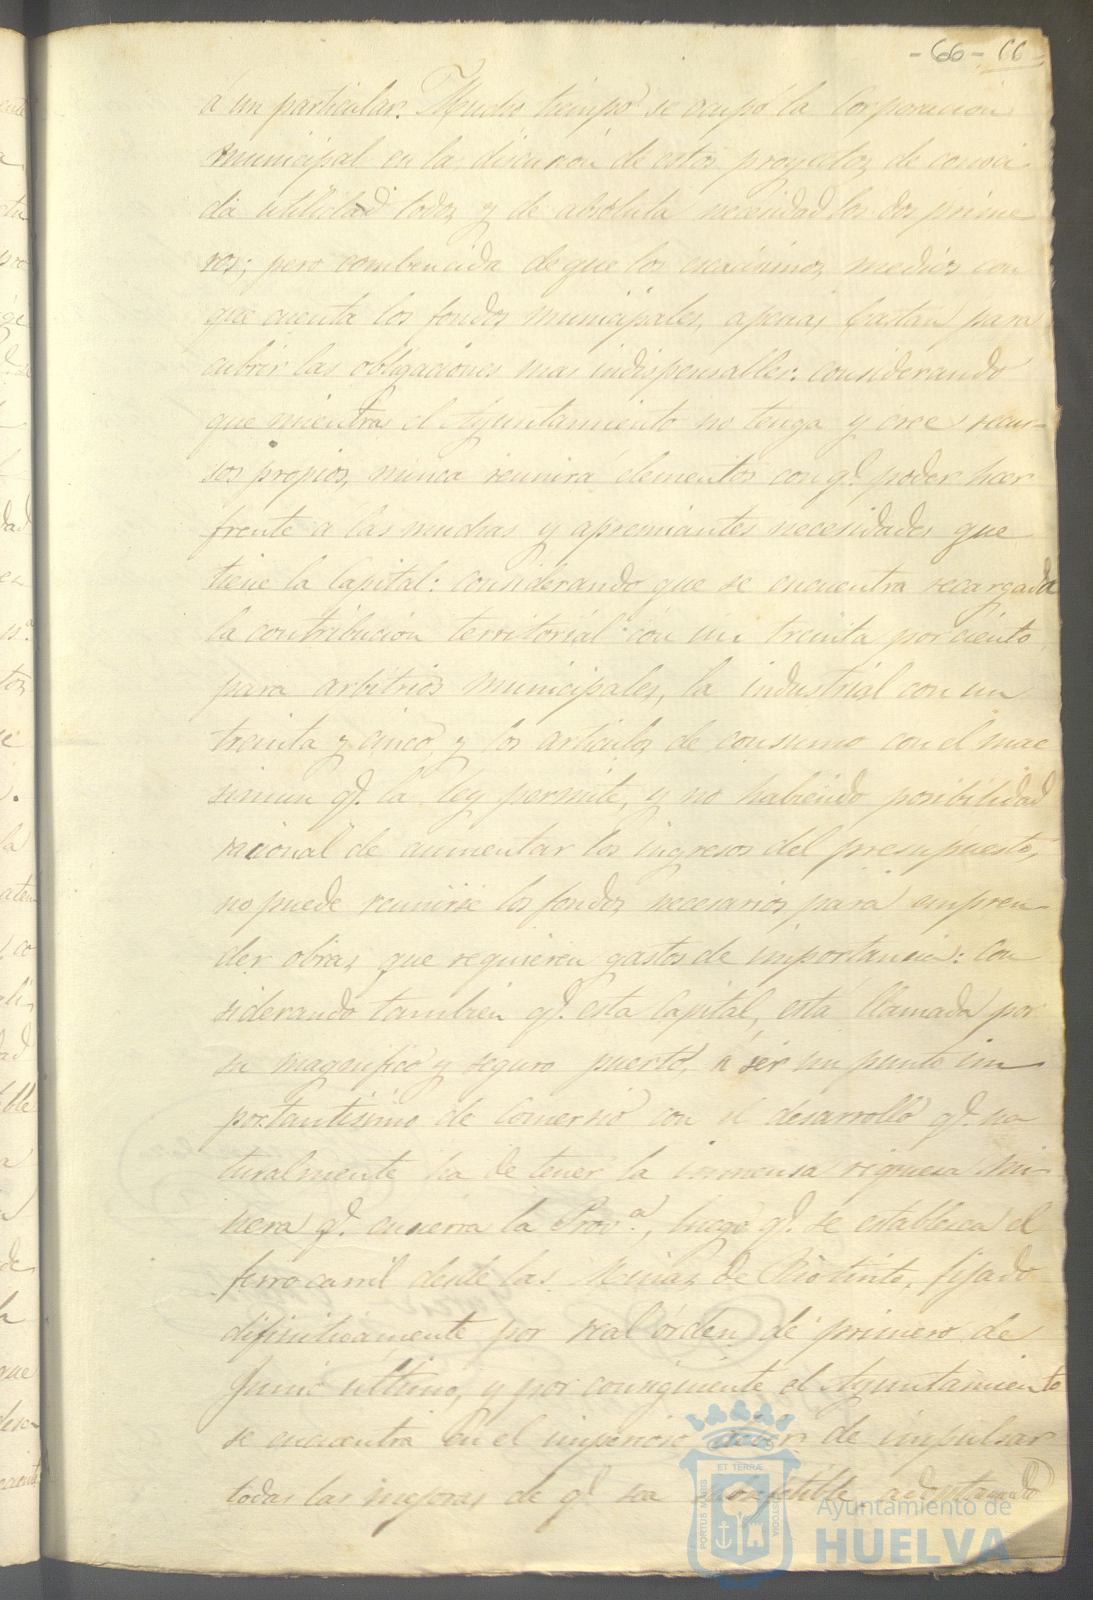 -66- 66
á un particular. Mucho tiempo se ocupó la Corporacion
municipal en la discusion de estos proyectos de conoci
da utilidad todos y de absoluta necesidad los dos prime
ros; pero combencida de que los escasisimos medios con
que cuenta los fondos municipales, apenas bastan para
cubrir las obligaciones mas indispensables: considerando
que mientras el Ayuntamiento no tenga y cree recur-
sos propios, nunca reunirá elementos con q.e poder hacer
frente á las muchas y apremiantes necesidades que
tiene la Capital: considerando que se encuentra recargada
la contribucion territorial con un treinta por ciento
para arbitrios municipales, la industrial con un
treinta y cinco, y los articulos de consumo con el mac
simun q.e la ley permite, y no habiendo posibilidad
racional de aumentar los ingresos del presupuesto,
no puede reunirse los fondos necesarios para empren
der obras que requieren gastos de importancia: Con
siderando tambien q.e esta Capital, está llamada por
su magnifico y seguro puerto, á ser un punto im
portantisimo de Comersio con el desarrollo q.e na
turalmente ha de tener la inmensa riquesa mi
nera q.e encierra la Prov.a, luego q.e se establesca el
ferro carril desde las Minas de Riotinto, fijado
difinitivamente por real orden de primero de
Junio ultimo, y por consiguiente el Ayuntamiento
se encuentra en el imperioso deber de impulsar
todas las mejoras de q.e sea suseptible, adoptando
PORTUS MARIS ET TERRÆ CUSTODIA
Ayuntamiento de
HUELVA